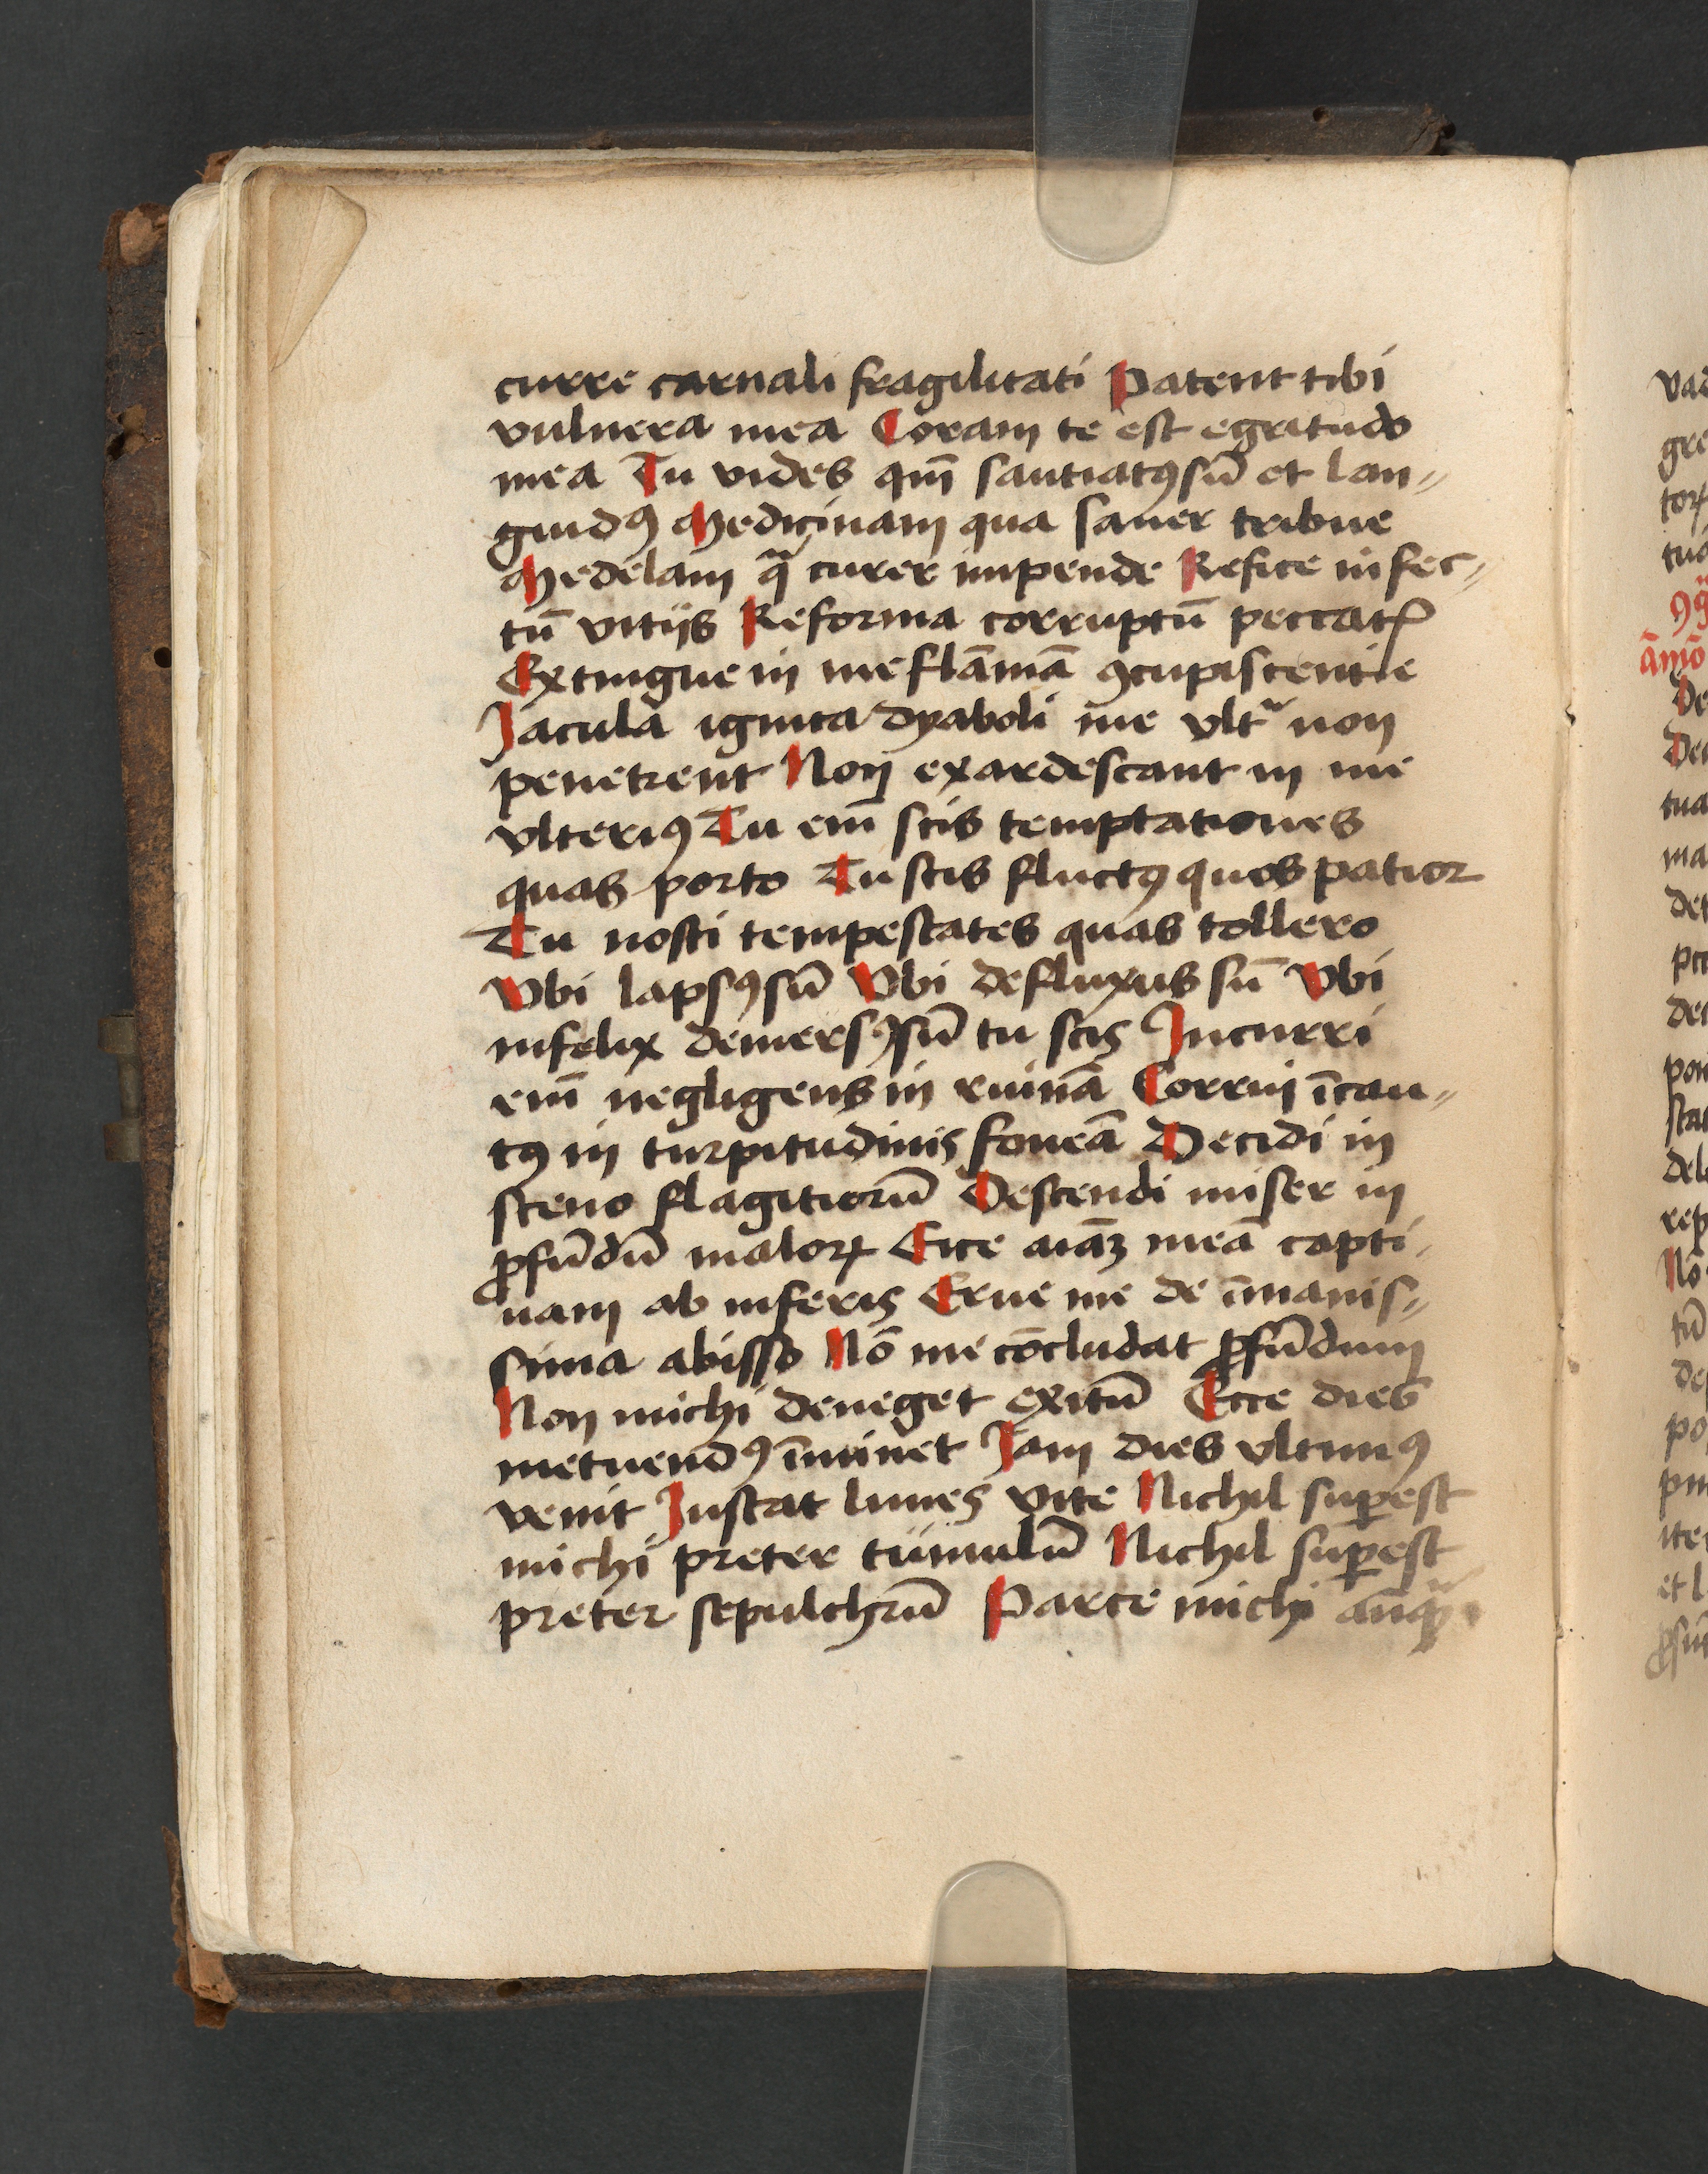 curre carnali fragilitati Patent tibi
vulnera mea Coram te est egritudo
mea Tu vides qm̄ sautiatꝯ sū et lan〃
guidꝯ Medicinam qua saner tribue
Medelam qᷓ curer impende Refice infec〃
tū vitijs Reforma corruptū peccatꝭ
Extingue in me flāmā ꝯcupiscentie
Jacula ignita dyaboli me vltᷓ non
penetrent Non exardescant in me
vlteriꝯ Tu em̄ scis temptationes
quas porto Tu scis fluctꝯ quos patior
Tu nosti tempestates quas tollero
Vbi lapsꝯ sū Vbi defluxus sū Vbi
infelix demersꝯ sū tu scis Incurri
em̄ negligens in ruinā Corrui īcau〃
tꝯ in turpitudinis foueā Decidi in
sceno flagitiorū Descendi miser in
ꝓfūdū maloꝝ Eice aīaꝫ meā capti
uam ab inferis Erue me de īmanis〃
sima abisso Nō me cōcludat ꝓfūdum
Non michi deneget exitū Ecce dies
metuendꝯ īminet Jam dies vltimꝯ
venit Instat limes vite Nichil suꝑest
michi preter tumulū Nichil suꝑest
preter sepulchrū Parce michi anqᷓ